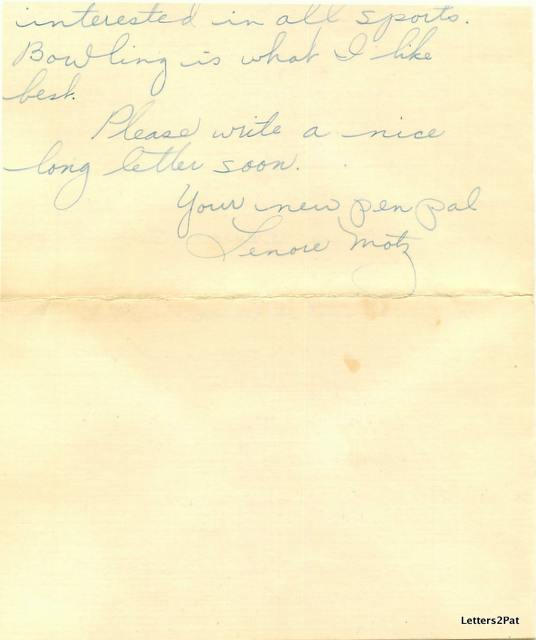 interested in all sports.
Bowling is what I like
best.
Please write a nice
long letter soon.
Your new pen pal
Lenore Motz
Letters2Pat